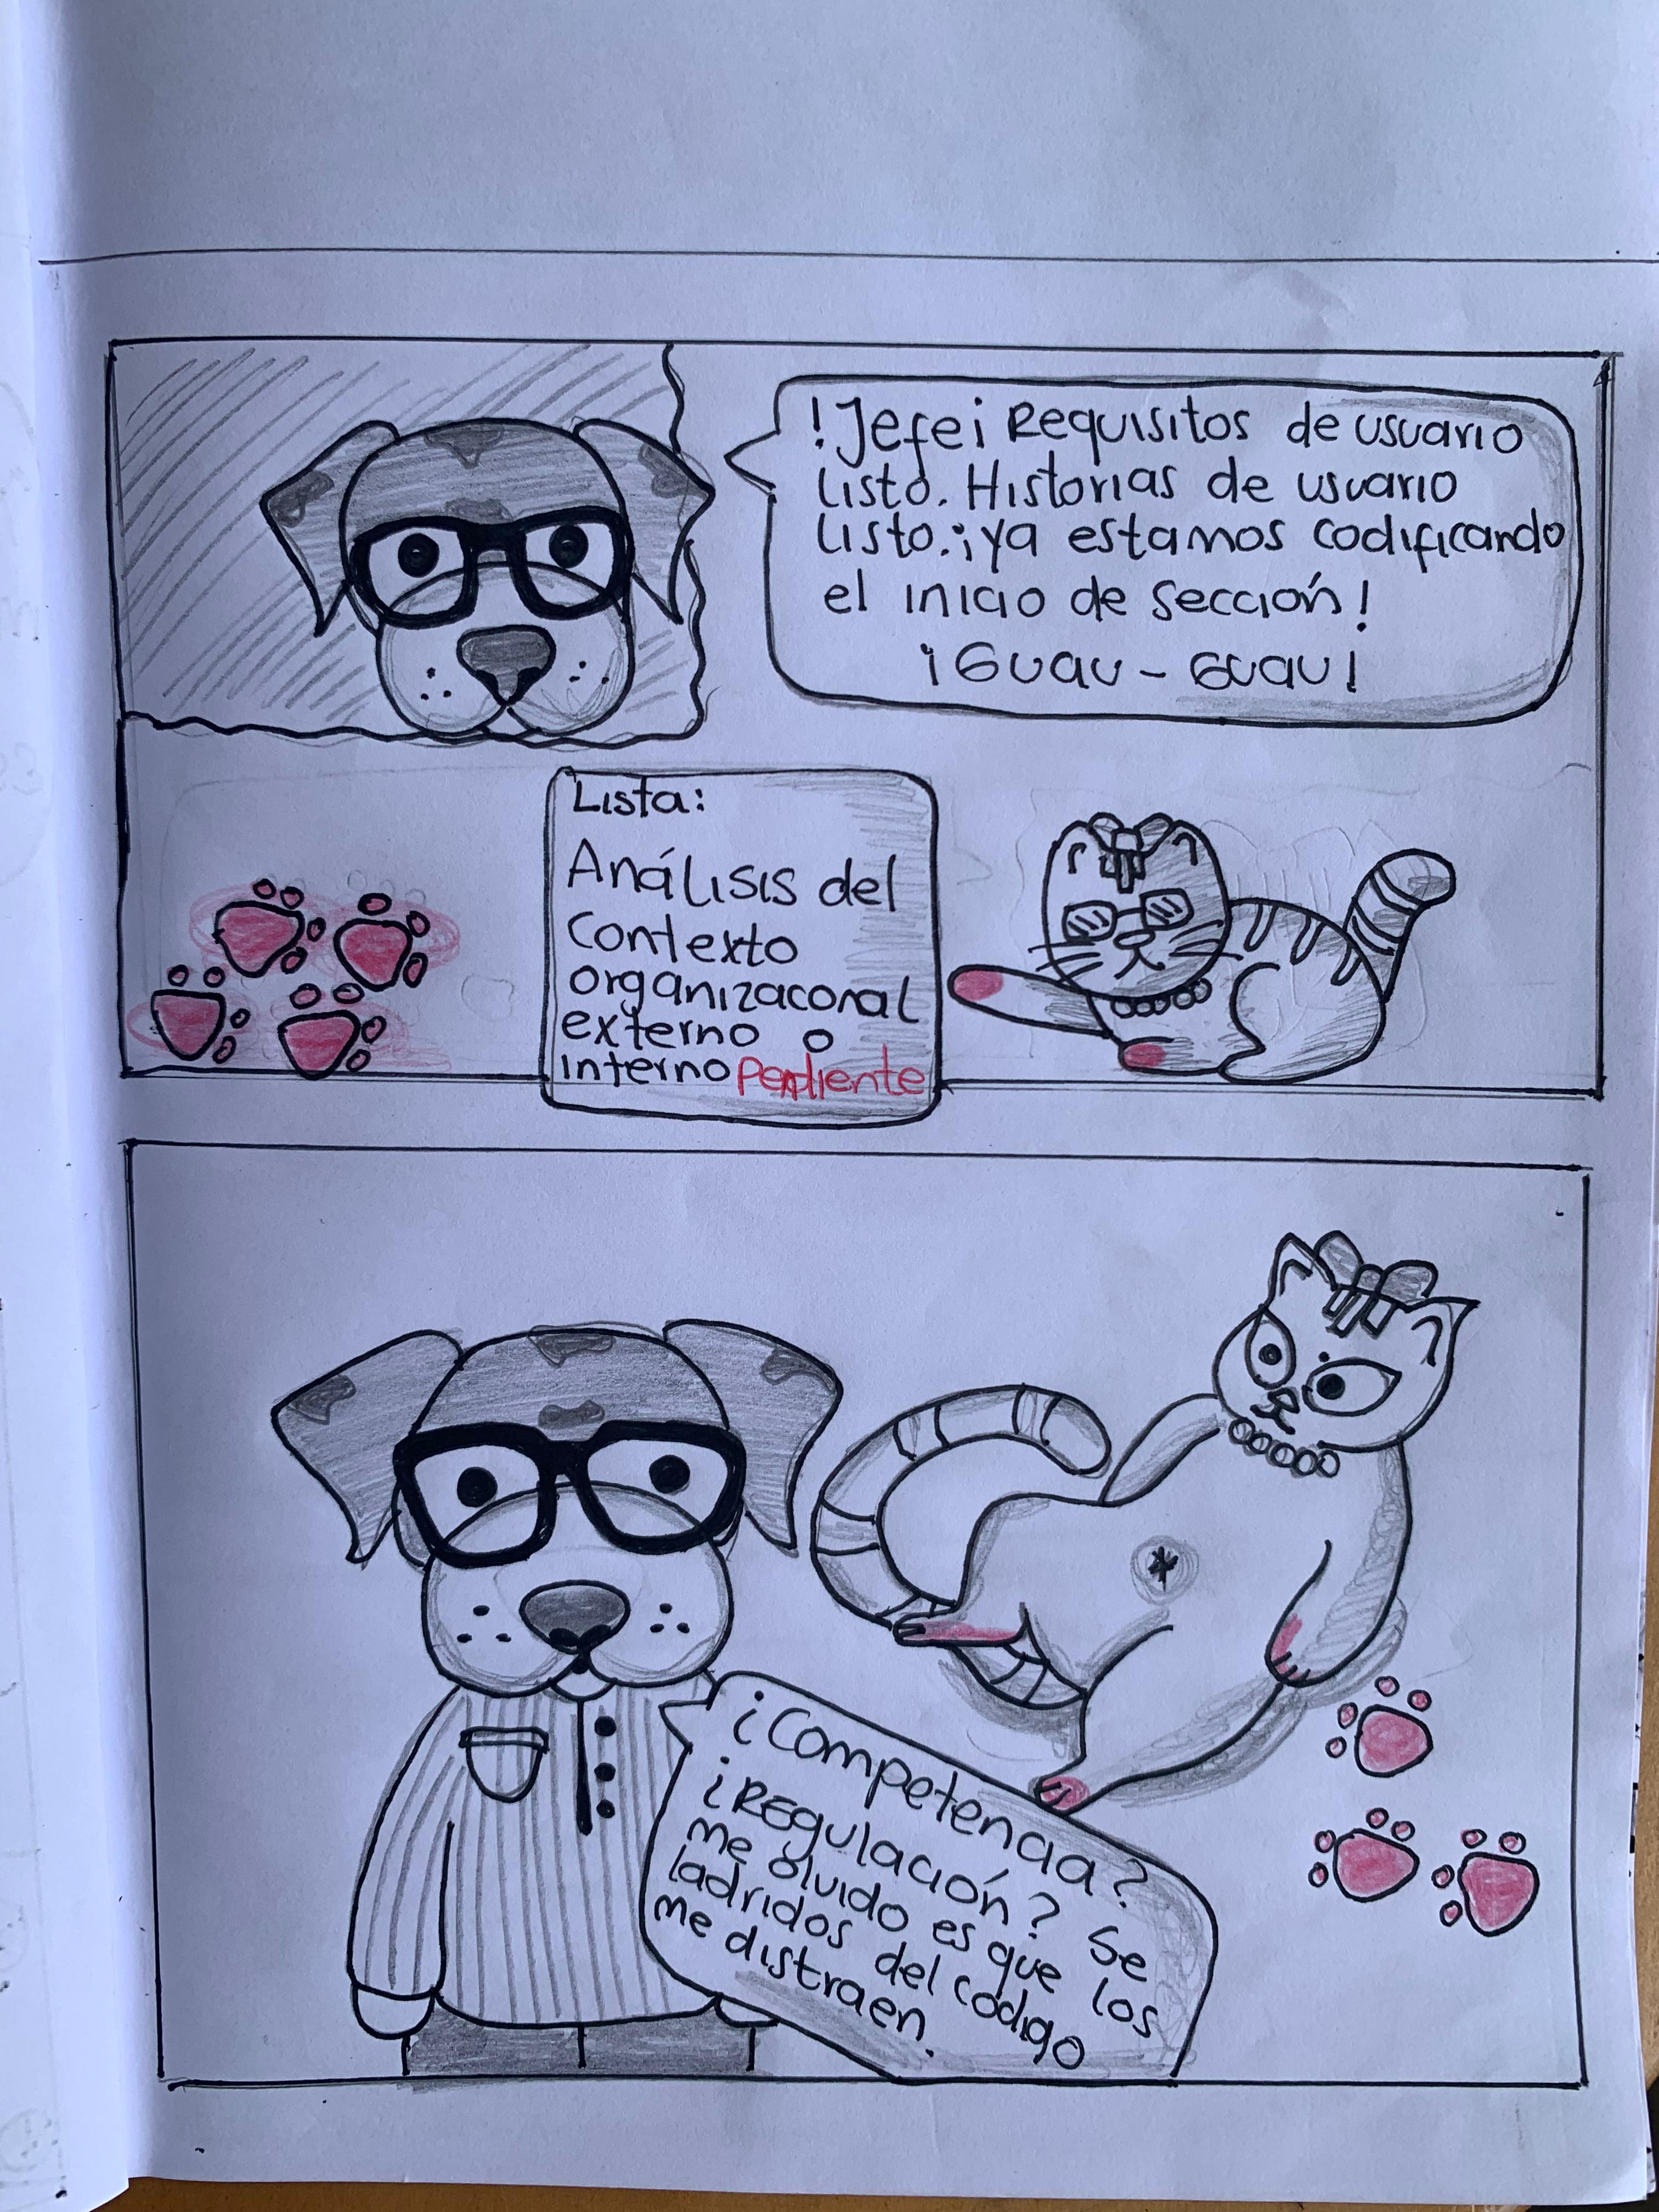 !Jefe¡ Requisitos de usuario
listo. Historias de usuario
listo. ¡ya estamos codificando
el inicio de sección!
¡Guau - Guau!
Lista:
Análisis del
contexto
organizaconal
externo o
interno Pendiente
¿Competencia?
¿Regulación? Se
me olvido es que los
ladridos del código
me distraen.